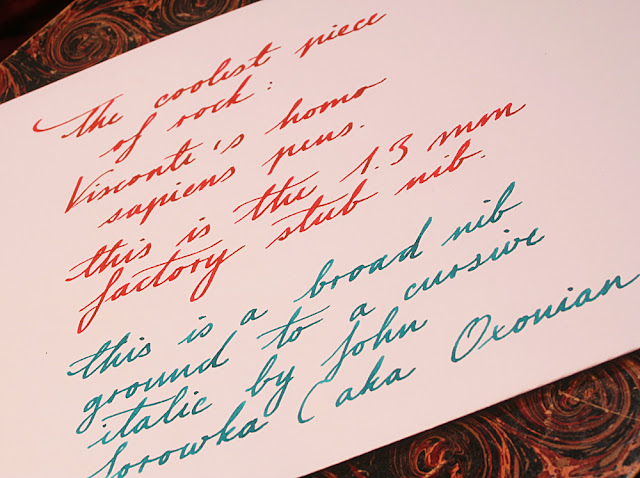 the coolest piece
of rock:
Visconti's homo
sapiens pens.
this is the 1.3 mm
factory stub nib.
this is a broad nib
ground to a cursive
italic by John
Sorowka (aka Oxonian